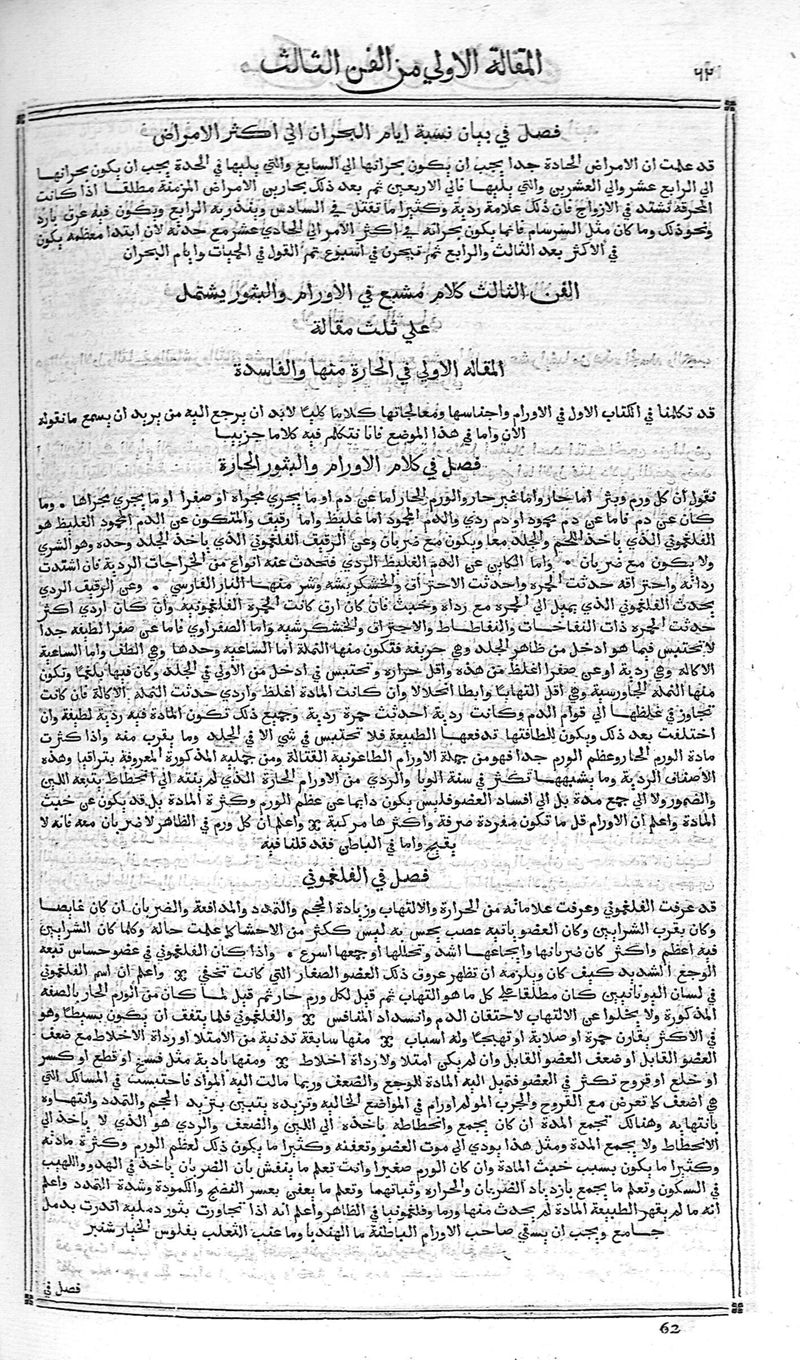 ٦٢
المقالة الاولي من الفن الثالث
فصل في بيان نسبة ايام البحران الي اكثر الامراض
قد علمت ان الامراض الحادة جدا يجب ان يكون بحرانها الي السابع والتي يليها في الحدة يجب ان يكون بحرانها
الي الرابع عشر والي العشرين والتي يليها فالي الاربعين ثم بعد ذلك بحارين الامراض المزمنة مطلقا اذا كانت
المحرقة تشتد في الازواج فان ذلك علامة ردية وكثيرا ما تقتل في السادس وينذر به الرابع ويكون فيه عرق بارد
ونحو ذلك وما كان مثل السرسام فانما يكون بحرانه في اكثر الامر الي الحادي عشر مع حدته لان ابتدا معظمه يكون
في الاكثر بعد الثالث والرابع ثم تبحرن في اسبوع تم القول في الحميات وايام البحران
الفن الثالث كلام مشبع في الاورام والبثور يشتمل
علي ثلث مقالة
المقالة الاولي في الحارة منها والفاسدة
قد تكلمنا في الكتاب الاول في الاورام واجناسها ومعالجاتها كلاما كليا لابد ان يرجع اليه من يريد ان يسمع ما نقوله
الان واما في هذا الموضع فانا نتكلم فيه كلاما جزييا
فصل في كلام الاورام والبثور الحارة
نقول ان كل ورم وبثر اما حار واما غير حار والورم الحار اما عن دم او ما يجري مجراه او صفرا او ما يجري مجراها . وما
كان عن دم فاما عن دم محمود او دم ردي والدم المحمود اما غليظ واما رقيق والمتكون عن الدم المحمود الغليظ هو
الفلغموني الذي ياخذ اللحم والجلد معا ويكون مع ضربان وعن الرقيق الفلغموني الذي ياخذ الجلد وحده وهو الشري
ولا يكون مع ضربان . واما الكاين عن الدم الغليظ الردي فتحدث عنه انواع من الخراجات الردية فان اشتدت
رداته واحتراقه حدثت الجمره واحدثت الاحتراق والخشكريشه وشر منها النار الفارسي . وعن الرقيق الردي
يحدث الفلغموني الذي يميل الي الجمره مع رداة وخبث فان كان ارق كانت الجمرة الفلغمونية وان كان اردي اكثر
حدثت الجمره ذات النفاخات والنفاطات والاحتراق والخشكرشيه واما الصفراوي فاما عن صفرا لطيفه جدا
لا تحتبس فيما هو ادخل من ظاهر الجلد وهي حريفه فتكون منها النملة اما الساعية وحدها وهي الطف واما الساعية
الاكاله وهي ردية او عن صفرا اغلظ من هذه واقل حراره وتحتبس في ادخل من الاولي في الجلد وكان فيها بلغما وتكون
منها النملة الجاورسية وهي اقل التهابا وابطا انحلالا وان كانت المادة اغلظ واردي حدثت النملة الاكالة فان كانت
تجاوز في غلظها الي قوام الدم وكانت ردية احدثت حمرة ردية وجميع ذلك تكون المادة فيه ردية لطيفة وان
اختلفت بعد ذلك ويكون للطافتها تدفعها الطبيعة فلا تحتبس في شي الا في الجلد وما يقرب منه واذا كثرت
مادة الورم الحار وعظم الورم جدا فهو من جملة الاورام الطاعونية القتالة ومن جملة المذكورة المعروفة بتراقيا وهذه
الاصناف الردية وما يشبهها تكثر في سنة الوبا والردي من الاورام الحارة الذي لم ينته الي انحطاط يتبعه اللين
والضمور ولا الي جمع مدة بل الي افساد العضو فليس يكون دايما عن عظم الورم وكثرة المادة بل قد يكون عن خبث
المادة واعلم ان الاورام قل ما تكون مفردة صرفة واكثرها مركبة واعلم ان كل ورم في الظاهر لا ضربان معه فانه لا
يقيح واما في الباطن فقد قلنا فيه
فصل في الفلغموني
قد عرفت الفلغموني وعرفت علاماته من الحرارة والالتهاب وزيادة الحجم والتمدد والمدافعة والضربان ان كان غايصا
وكان بقرب الشرايين وكان العضو ياتيه عصب يحس به ليس ككثر من الاحشا كما علمت حاله وكلما كان الشرايين
فيه اعظم واكثر كان ضربانها وايجاعها اشد وتحللها او جمعها اسرع . واذا كان الفلغموني في عضو حساس تبعه
الوجع الشديد كيف كان ويلزمه ان تظهر عروق ذلك العضو الصغار التي كانت تخفي واعلم ان اسم الفلغموني
في لسان اليونانيين كان مطلقا علي كل ما هو التهاب ثم قيل لكل ورم حار ثم قيل لما كان من الورم الحار بالصفة
المذكورة ولا يخلوا عن الالتهاب لاحتقان الدم وانسداد المنافس والفلغموني قلما يتفق ان يكون بسيطا وهو
في الاكثر يقارن حمرة او صلابة او تهيجا وله اسباب منها سابقة بدنية من الامتلا او رداة الاخلاط مع ضعف
العضو القابل او ضعف العضو القابل وان لم يكن امتلا ولا رداة اخلاط ومنها بادية مثل فسخ او قطع او كسر
او خلع او قروح تكثر في العضو فتميل اليه المادة للوجع والضعف وربما مالت اليه المواد فاحتبست في المسالك التي
هي اضعف كما تعرض مع القروح والجرب المولم اورام في المواضع الخاليه وتزيده يتبين بتزيد الحجم والتمدد وانتهاوه
بانتهايه وهنالك تجمع المدة ان كان يجمع وانحطاطه باخذه الي اللين والضعف والردي هو الذي لا ياخذ الي
الانحطاط ولا يجمع المدة ومثل هذا يودي الي موت العضو وتعفنه وكثيرا ما يكون ذلك لعظم الورم وكثرة مادته
وكثيرا ما يكون بسبب خبث المادة وان كان الورم صغيرا وانت تعلم ما ينفش بان الضربان ياخذ في الهدو واللهيب
في السكون وتعلم ما يجمع بازدياد الضربان والحراره وثباتهما وتعلم ما يعفن بعسر النضج والكمودة وشدة التمدد واعلم
انه ما لم يقهر الطبيعة المادة لم يحدث منها ورما وفلغمونيا في الظاهر واعلم انه اذا تجاورت بثور دملية انذرت بدمل
جامع ويجب ان يسقي صاحب الاورام الباطنة ما الهنديا وما عنب الثعلب بفلوس الخيار شنبر
فصل في
62